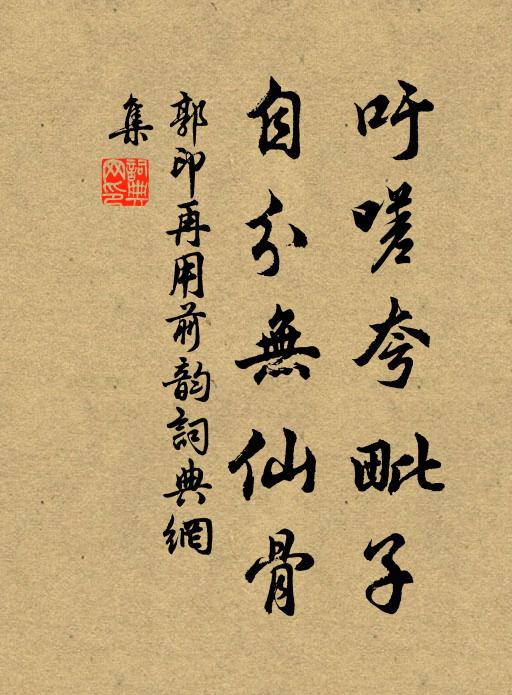 吁嗟夸毗子
自分無仙骨
郭印再用前韵詞典網
集
詞典网印